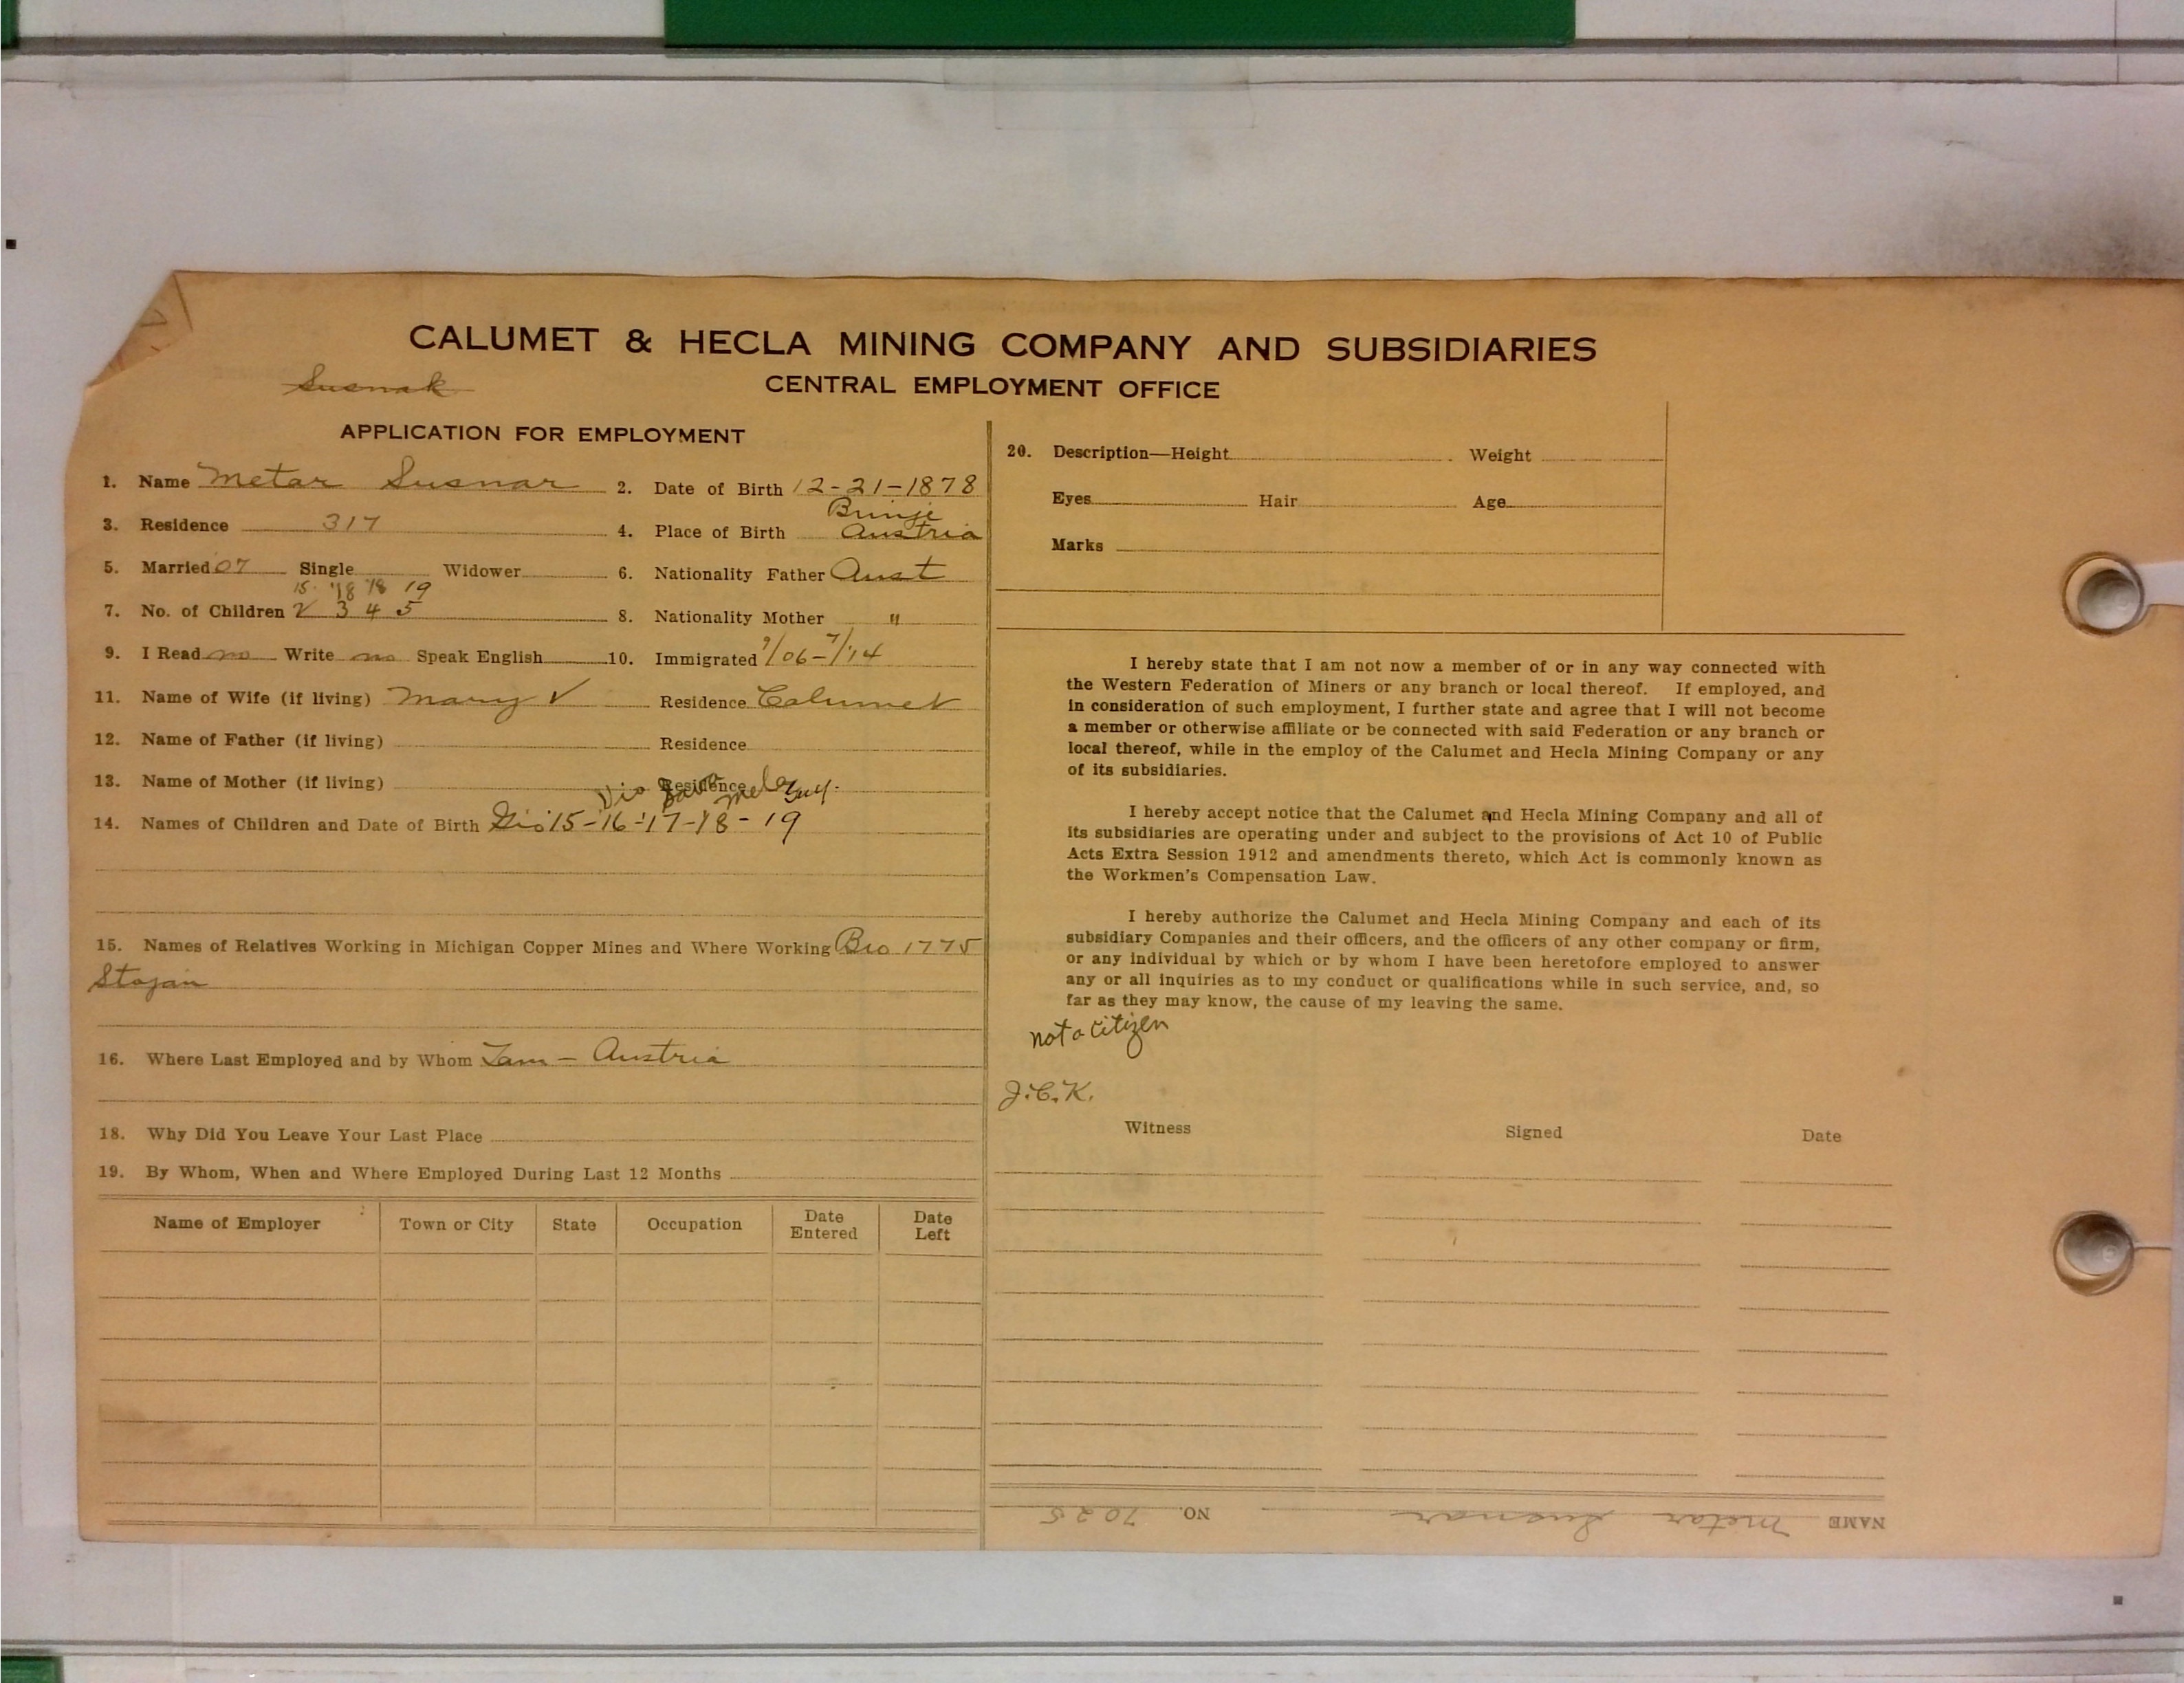 CALUMET & HECLA MINING COMPANY AND SUBSIDIARIES
Susnak
CENTRAL EMPLOYMENT OFFICE
APPLICATION FOR EMPLOYMENT
1. Name Metar Susnar 2. Date of Birth 12-21-1878
3. Residence 317 4. Place of Birth Brinje Austria
5. Married 07 Single Widower 6. Nationality Father Aust
15 '18 '18 19
7. No. of Children 2 3 4 5 8. Nationality Mother "
9. I Read no Write no Speak English 10. Immigrated 9/06-7/14
11. Name of Wife (if living) Mary V Residence Calumet
12. Name of Father (if living) Residence
13. Name of Mother (if living) Residence
14. Names of Children and Date of Birth 15-16-'17-18-19
15. Names of Relatives Working in Michigan Copper Mines and Where Working Bro 1775
Stojan
16. Where Last Employed and by Whom Austria
18. Why Did You Leave Your Last Place
19. By Whom, When and Where Employed During Last 12 Months
Name of Employer Town or City State Occupation Date Entered Date Left
20. Description—Height Weight
Eyes Hair Age
Marks
I hereby state that I am not now a member of or in any way connected with
the Western Federation of Miners or any branch or local thereof. If employed, and
in consideration of such employment, I further state and agree that I will not become
a member or otherwise affiliate or be connected with said Federation or any branch or
local thereof, while in the employ of the Calumet and Hecla Mining Company or any
of its subsidiaries.
I hereby accept notice that the Calumet and Hecla Mining Company and all of
its subsidiaries are operating under and subject to the provisions of Act 10 of Public
Acts Extra Session 1912 and amendments thereto, which Act is commonly known as
the Workmen's Compensation Law.
I hereby authorize the Calumet and Hecla Mining Company and each of its
subsidiary Companies and their officers, and the officers of any other company or firm,
or any individual by which or by whom I have been heretofore employed to answer
any or all inquiries as to my conduct or qualifications while in such service, and, so
far as they may know, the cause of my leaving the same.
not a citizen
J.C.K.
Witness Signed Date
NAME Metar Susnar NO. 7025